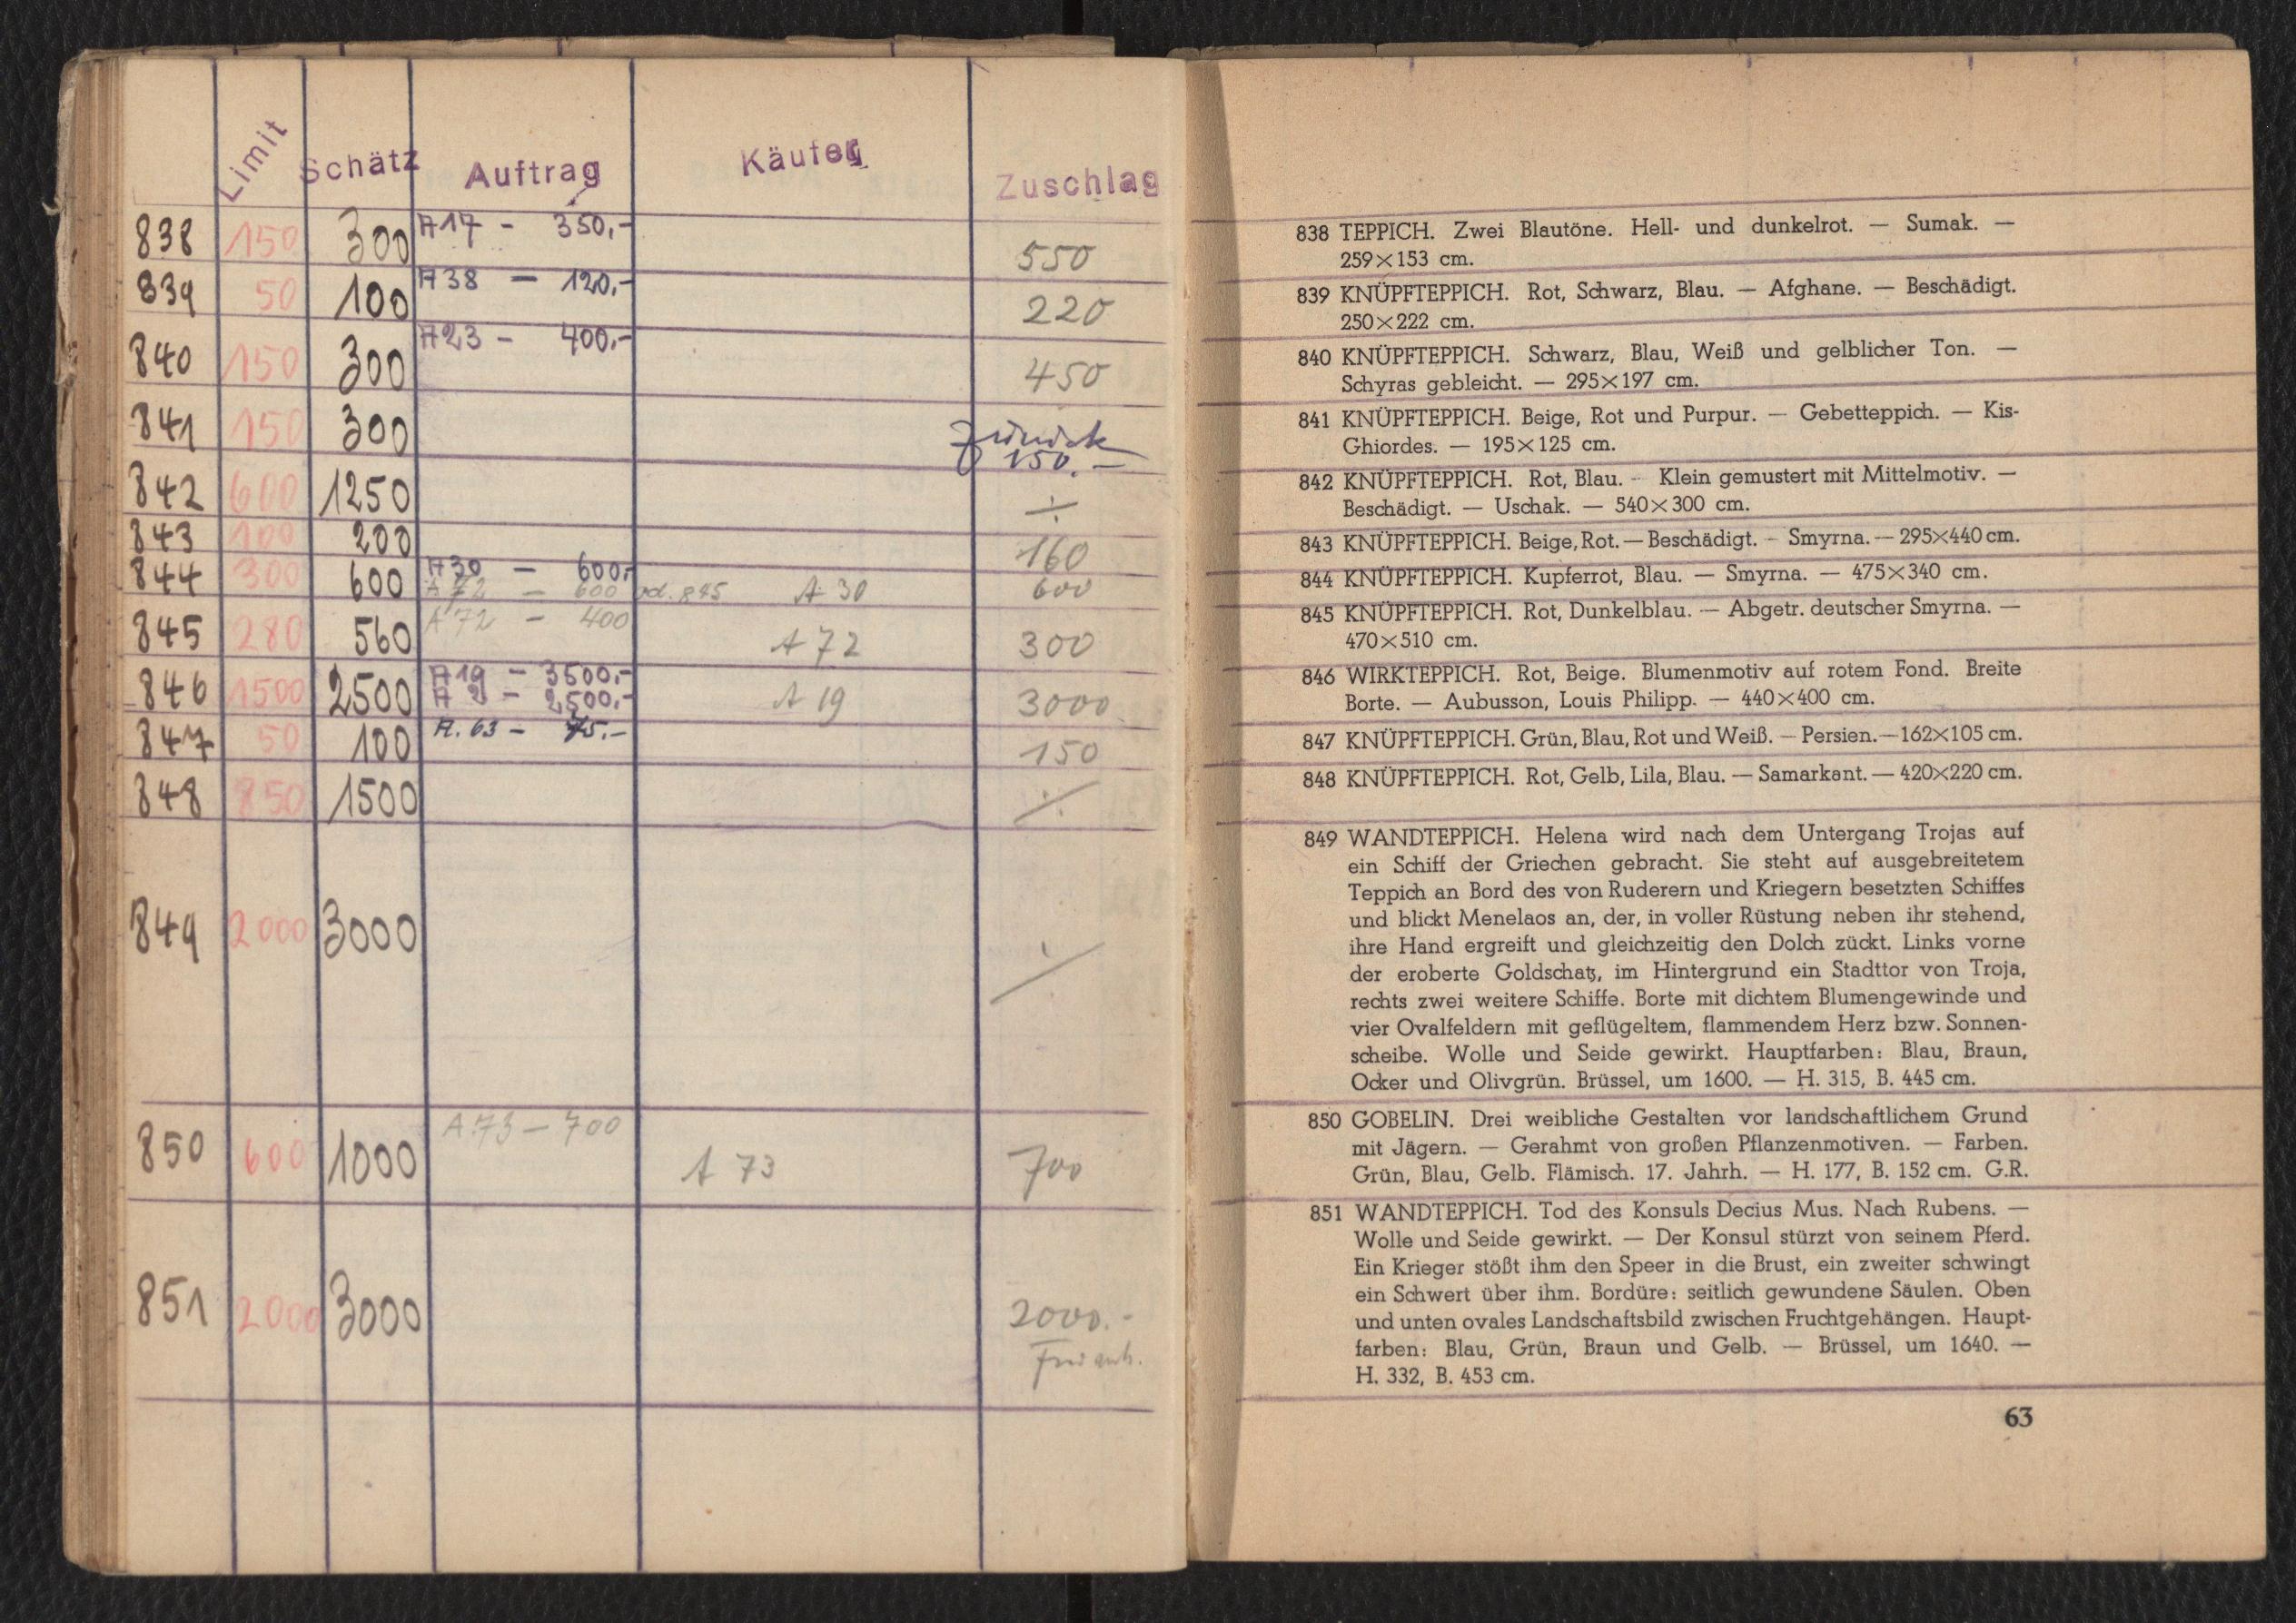 Limit Schätz Auftrag Käufer Zuschlag
838 150 300 A 17 - 350,- 550
839 50 100 A 38 - 120,- 220
840 150 300 A 23 - 400,- 450
841 150 300 zurück
150.-
842 600 1250 ÷
843 100 200 160
844 300 600 A 30 - 600,- A 30 600
A 72 - 600 od. 845
845 280 560 A 72 - 400 A 72 300
846 1500 2500 A 19 - 3500,- A 19 3000
2,500,-
847 50 100 A. 63 - 75.- 150
848 850 1500 ÷
849 2000 3000 ÷
850 600 1000 A 73 - 700 A 73 700
851 2000 3000 2000.-
838 TEPPICH. Zwei Blautöne. Hell- und dunkelrot. — Sumak. —
259×153 cm.
839 KNÜPFTEPPICH. Rot, Schwarz, Blau. — Afghane. — Beschädigt.
250×222 cm.
840 KNÜPFTEPPICH. Schwarz, Blau, Weiß und gelblicher Ton. —
Schyras gebleicht. — 295×197 cm.
841 KNÜPFTEPPICH. Beige, Rot und Purpur. — Gebetteppich. — Kis-
Ghiordes. — 195×125 cm.
842 KNÜPFTEPPICH. Rot, Blau. — Klein gemustert mit Mittelmotiv. —
Beschädigt. — Uschak. — 540×300 cm.
843 KNÜPFTEPPICH. Beige, Rot. — Beschädigt. — Smyrna. — 295×440 cm.
844 KNÜPFTEPPICH. Kupferrot, Blau. — Smyrna. — 475×340 cm.
845 KNÜPFTEPPICH. Rot, Dunkelblau. — Abgetr. deutscher Smyrna. —
470×510 cm.
846 WIRKTEPPICH. Rot, Beige. Blumenmotiv auf rotem Fond. Breite
Borte. — Aubusson, Louis Philipp. — 440×400 cm.
847 KNÜPFTEPPICH. Grün, Blau, Rot und Weiß. — Persien. — 162×105 cm.
848 KNÜPFTEPPICH. Rot, Gelb, Lila, Blau. — Samarkant. — 420×220 cm.
849 WANDTEPPICH. Helena wird nach dem Untergang Trojas auf
ein Schiff der Griechen gebracht. Sie steht auf ausgebreitetem
Teppich an Bord des von Ruderern und Kriegern besetzten Schiffes
und blickt Menelaos an, der, in voller Rüstung neben ihr stehend,
ihre Hand ergreift und gleichzeitig den Dolch zückt. Links vorne
der eroberte Goldschatz, im Hintergrund ein Stadttor von Troja,
rechts zwei weitere Schiffe. Borte mit dichtem Blumengewinde und
vier Ovalfeldern mit geflügeltem, flammendem Herz bzw. Sonnen-
scheibe. Wolle und Seide gewirkt. Hauptfarben: Blau, Braun,
Ocker und Olivgrün. Brüssel, um 1600. — H. 315, B. 445 cm.
850 GOBELIN. Drei weibliche Gestalten vor landschaftlichem Grund
mit Jägern. — Gerahmt von großen Pflanzenmotiven. — Farben.
Grün, Blau, Gelb. Flämisch. 17. Jahrh. — H. 177, B. 152 cm. G.R.
851 WANDTEPPICH. Tod des Konsuls Decius Mus. Nach Rubens. —
Wolle und Seide gewirkt. — Der Konsul stürzt von seinem Pferd.
Ein Krieger stößt ihm den Speer in die Brust, ein zweiter schwingt
ein Schwert über ihm. Bordüre: seitlich gewundene Säulen. Oben
und unten ovales Landschaftsbild zwischen Fruchtgehängen. Haupt-
farben: Blau, Grün, Braun und Gelb. — Brüssel, um 1640. —
H. 332, B. 453 cm.
63